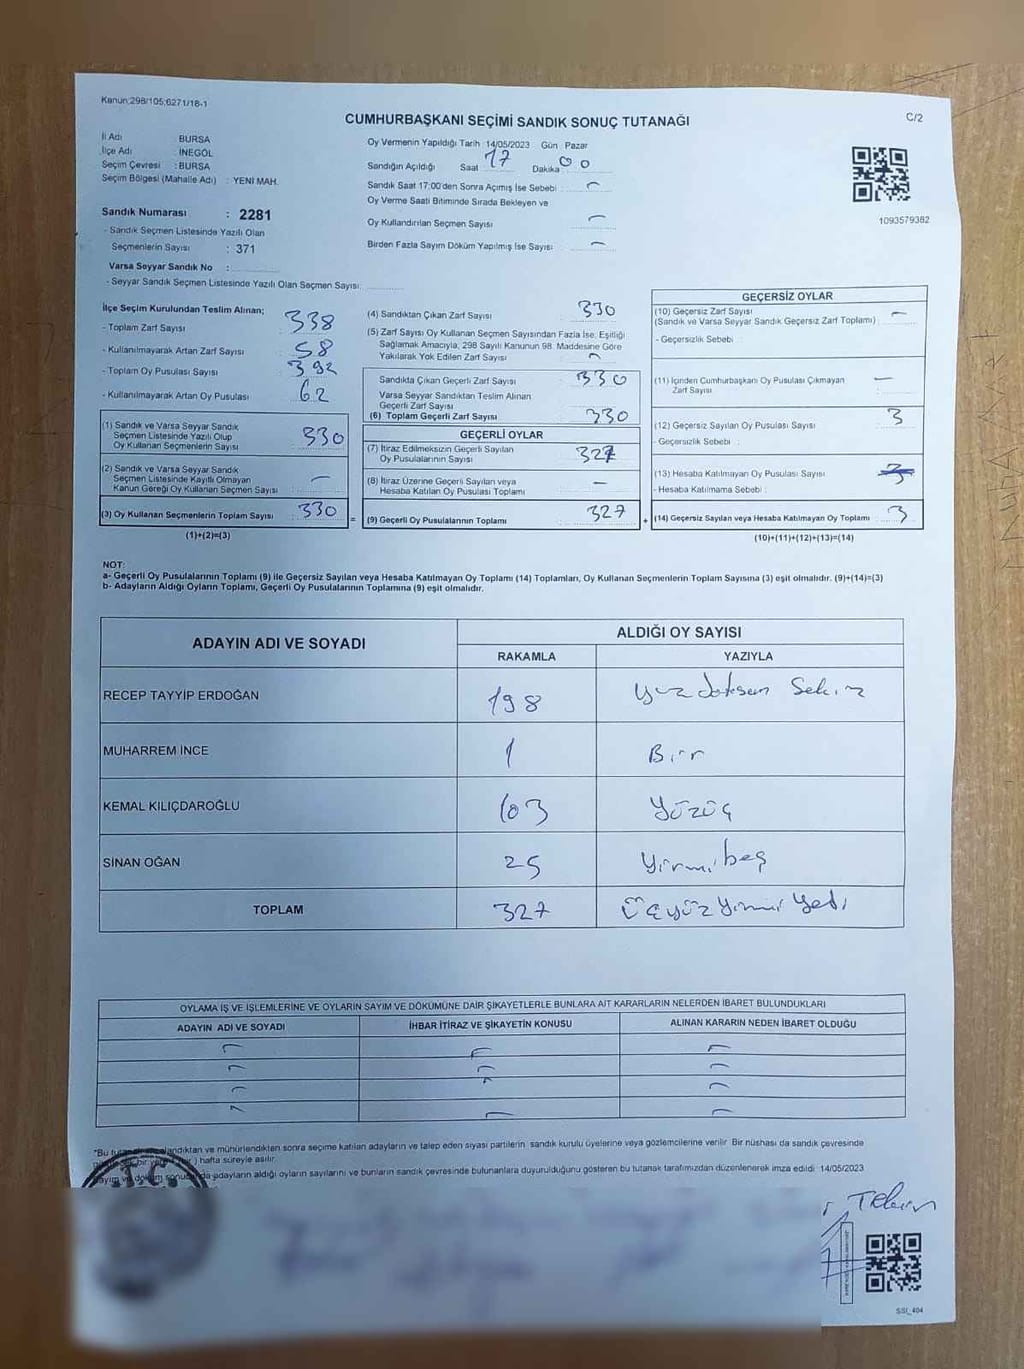 Kanun;298/105;6271/18-1
C/2
CUMHURBAŞKANI SEÇİMİ SANDIK SONUÇ TUTANAĞI
İl Adı : BURSA
İlçe Adı : İNEGÖL
Seçim Çevresi : BURSA
Seçim Bölgesi (Mahalle Adı) : YENİ MAH.
Sandık Numarası : 2281
- Sandık Seçmen Listesinde Yazılı Olan
Seçmenlerin Sayısı : 371
Varsa Seyyar Sandık No :
- Seyyar Sandık Seçmen Listesinde Yazılı Olan Seçmen Sayısı:
Oy Vermenin Yapıldığı Tarih 14/05/2023 Gün Pazar
Sandığın Açıldığı Saat 17 Dakika 00
Sandık Saat 17:00'den Sonra Açımış İse Sebebi : -
Oy Verme Saati Bitiminde Sırada Bekleyen ve
Oy Kullandırılan Seçmen Sayısı -
Birden Fazla Sayım Döküm Yapılmış İse Sayısı -
1093579382
İlçe Seçim Kurulundan Teslim Alınan;
- Toplam Zarf Sayısı 338
- Kullanılmayarak Artan Zarf Sayısı 58
- Toplam Oy Pusulası Sayısı 392
- Kullanılmayarak Artan Oy Pusulası 62
(1) Sandık ve Varsa Seyyar Sandık
Seçmen Listesinde Yazılı Olup
Oy Kullanan Seçmenlerin Sayısı 330
(2) Sandık ve Varsa Seyyar Sandık
Seçmen Listesinde Kayıtlı Olmayan
Kanun Gereği Oy Kullanan Seçmen Sayısı -
(3) Oy Kullanan Seçmenlerin Toplam Sayısı 330
(1)+(2)=(3)
=
(4) Sandıktan Çıkan Zarf Sayısı 330
(5) Zarf Sayısı Oy Kullanan Seçmen Sayısından Fazla İse, Eşitliği
Sağlamak Amacıyla; 298 Sayılı Kanunun 98. Maddesine Göre
Yakılarak Yok Edilen Zarf Sayısı -
Sandıkta Çıkan Geçerli Zarf Sayısı 330
Varsa Seyyar Sandıktan Teslim Alınan
Geçerli Zarf Sayısı
(6) Toplam Geçerli Zarf Sayısı 330
GEÇERLİ OYLAR
(7) İtiraz Edilmeksizin Geçerli Sayılan
Oy Pusulalarının Sayısı 327
(8) İtiraz Üzerine Geçerli Sayılan veya
Hesaba Katılan Oy Pusulası Toplamı -
(9) Geçerli Oy Pusulalarının Toplamı 327
+
GEÇERSİZ OYLAR
(10) Geçersiz Zarf Sayısı -
(Sandık ve Varsa Seyyar Sandık Geçersiz Zarf Toplamı)
- Geçersizlik Sebebi :
(11) İçinden Cumhurbaşkanı Oy Pusulası Çıkmayan -
Zarf Sayısı
(12) Geçersiz Sayılan Oy Pusulası Sayısı 3
- Geçersizlik Sebebi :
(13) Hesaba Katılmayan Oy Pusulası Sayısı
- Hesaba Katılmama Sebebi :
(14) Geçersiz Sayılan veya Hesaba Katılmayan Oy Toplamı 3
(10)+(11)+(12)+(13)=(14)
NOT:
a- Geçerli Oy Pusulalarının Toplamı (9) ile Geçersiz Sayılan veya Hesaba Katılmayan Oy Toplamı (14) Toplamları, Oy Kullanan Seçmenlerin Toplam Sayısına (3) eşit olmalıdır. (9)+(14)=(3)
b- Adayların Aldığı Oyların Toplamı, Geçerli Oy Pusulalarının Toplamına (9) eşit olmalıdır.
ADAYIN ADI VE SOYADI ALDIĞI OY SAYISI
RAKAMLA YAZIYLA
RECEP TAYYİP ERDOĞAN 198 yüz doksan sekiz
MUHARREM İNCE 1 Bir
KEMAL KILIÇDAROĞLU 103 Yüzüç
SİNAN OĞAN 25 Yirmibeş
TOPLAM 327 Üçyüz Yirmi Yedi
OYLAMA İŞ VE İŞLEMLERİNE VE OYLARIN SAYIM VE DÖKÜMÜNE DAİR ŞİKAYETLERLE BUNLARA AİT KARARLARIN NELERDEN İBARET BULUNDUKLARI
ADAYIN ADI VE SOYADI İHBAR İTİRAZ VE ŞİKAYETİN KONUSU ALINAN KARARIN NEDEN İBARET OLDUĞU
- - -
- - -
- - -
- - -
*Bu tutanak imzalandıktan ve mühürlendikten sonra seçime katılan adayların ve talep eden siyası partilerin sandık kurulu üyelerine veya gözlemcilerine verilir. Bir nüshası da sandık çevresinde
hafta süreyle asılır.
Sayım ve döküm sonucunda adayların aldığı oyların sayılarını ve bunların sandık çevresinde bulunanlara duyurulduğunu gösteren bu tutanak tarafımızdan düzenlenerek imza edildi. 14/05/2023
T.C.
SSI_404